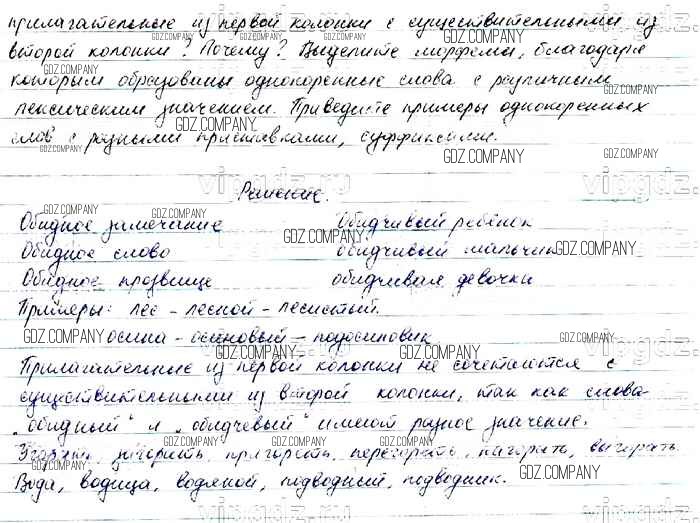 прилагательные из первой колонки с существительными из
второй колонки? Почему? Выделите морфемы, благодаря
которым образованы однокоренные слова с различным
лексическим значением. Приведите примеры однокоренных
слов с разными приставками, суффиксами.
Решение.
Обидное замечание Обидчивый ребёнок
Обидное слово обидчивый мальчик
Обидное прозвище обидчивая девочка
Примеры: лес - лесной - лесистый.
осина - осиновый - подосиновик
Прилагательные из первой колонки не сочетаются с
существительными из второй колонки, так как слова
"обидный" и "обидчевый" имеют разное значение.
Угарать, загорать, пригорать, перегорать, нагорать, выгорать.
Вода, водица, водяной, подводный, подводник.
GDZ.COMPANY
vipgdz.ru